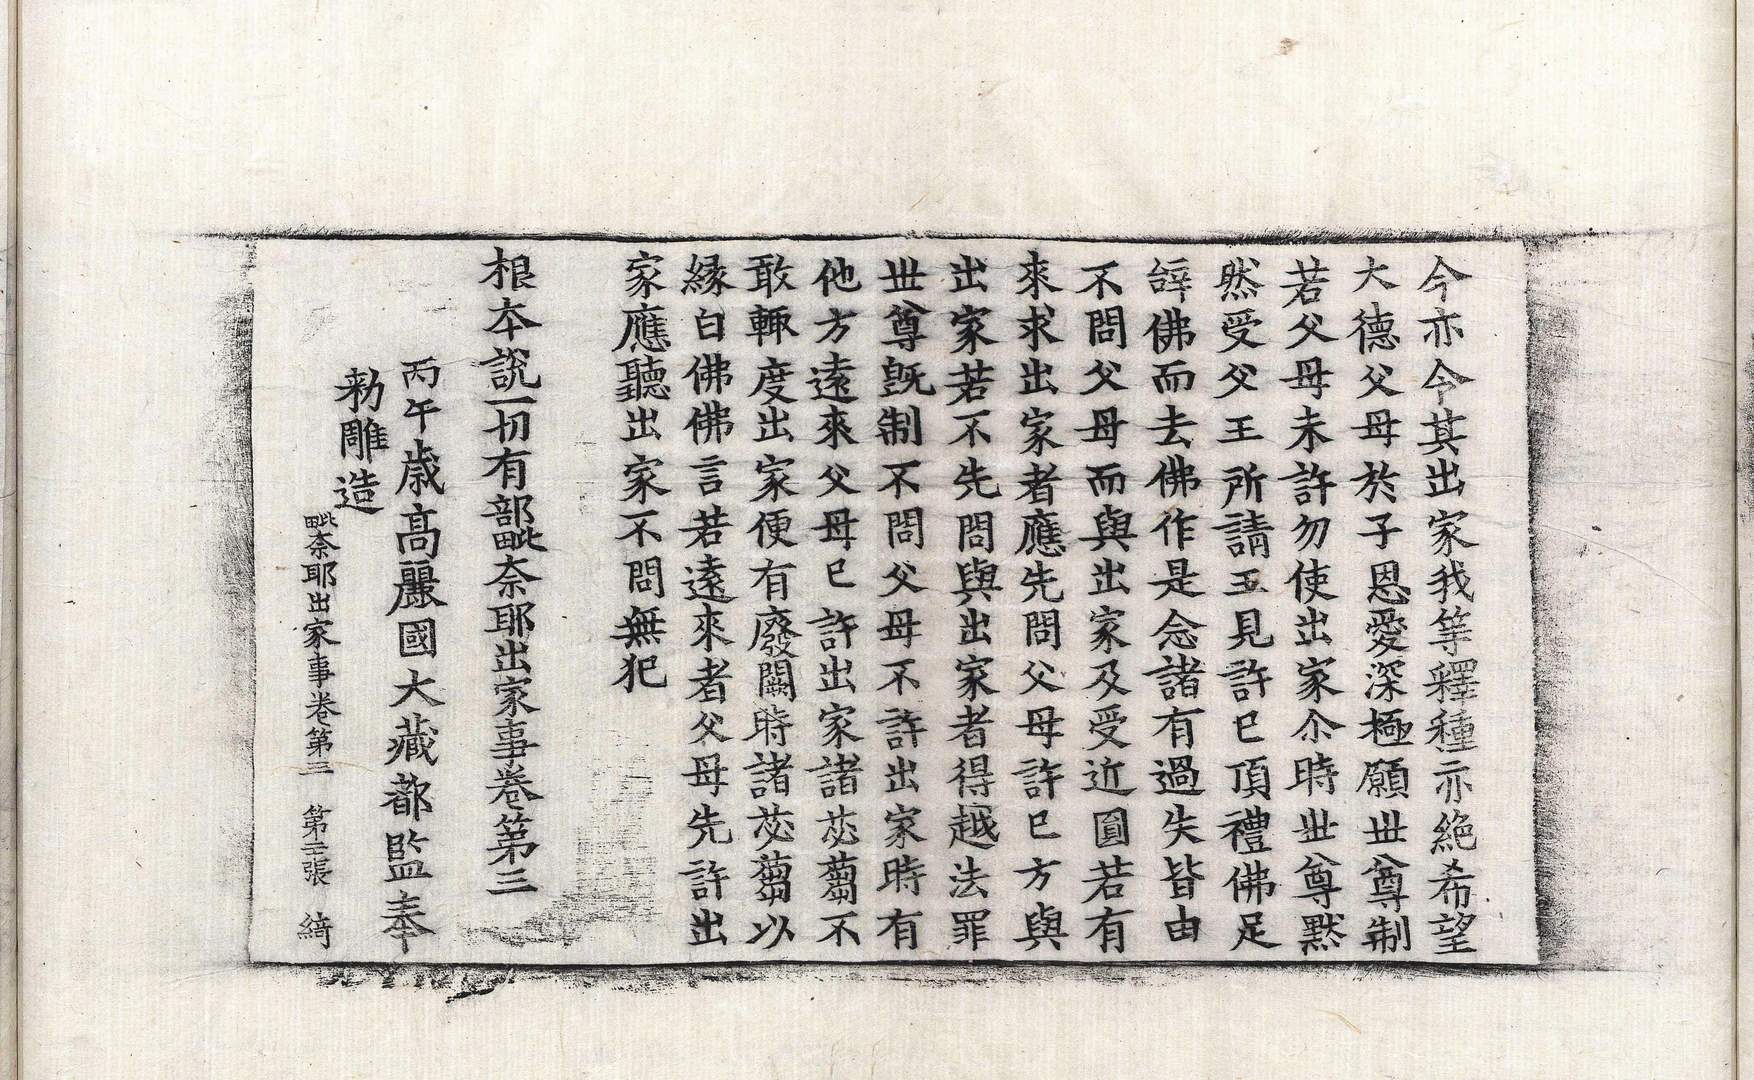 今亦令其出家我等釋種亦絶希望
大德父母於子恩愛深極願世尊制
若父母未許勿使出家尒時世尊黙
然受父王所請王見許已頂禮佛足
辝佛而去佛作是念諸有過失皆由
不問父母而與出家及受近圓若有
來求出家者應先問父母許已方與
出家若不先問與出家者得越法罪
世尊旣制不問父母不許出家時有
他方遠來父母已許出家諸苾蒭不
敢輒度出家便有廢闕時諸苾蒭以
縁白佛佛言若遠來者父母先許出
家應聽出家不問無犯
根本說一切有部毗奈耶出家事卷第三
丙午歳高麗國大藏都監奉
勑雕造
毗奈耶出家事卷第三　第二張　綺